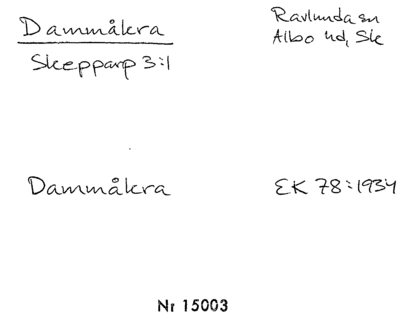 Dammåkra
Ravlunda sn
Albo hd, Sk
Skepparp 3:1
Dammåkra
EK 78:1934
Nr 15003